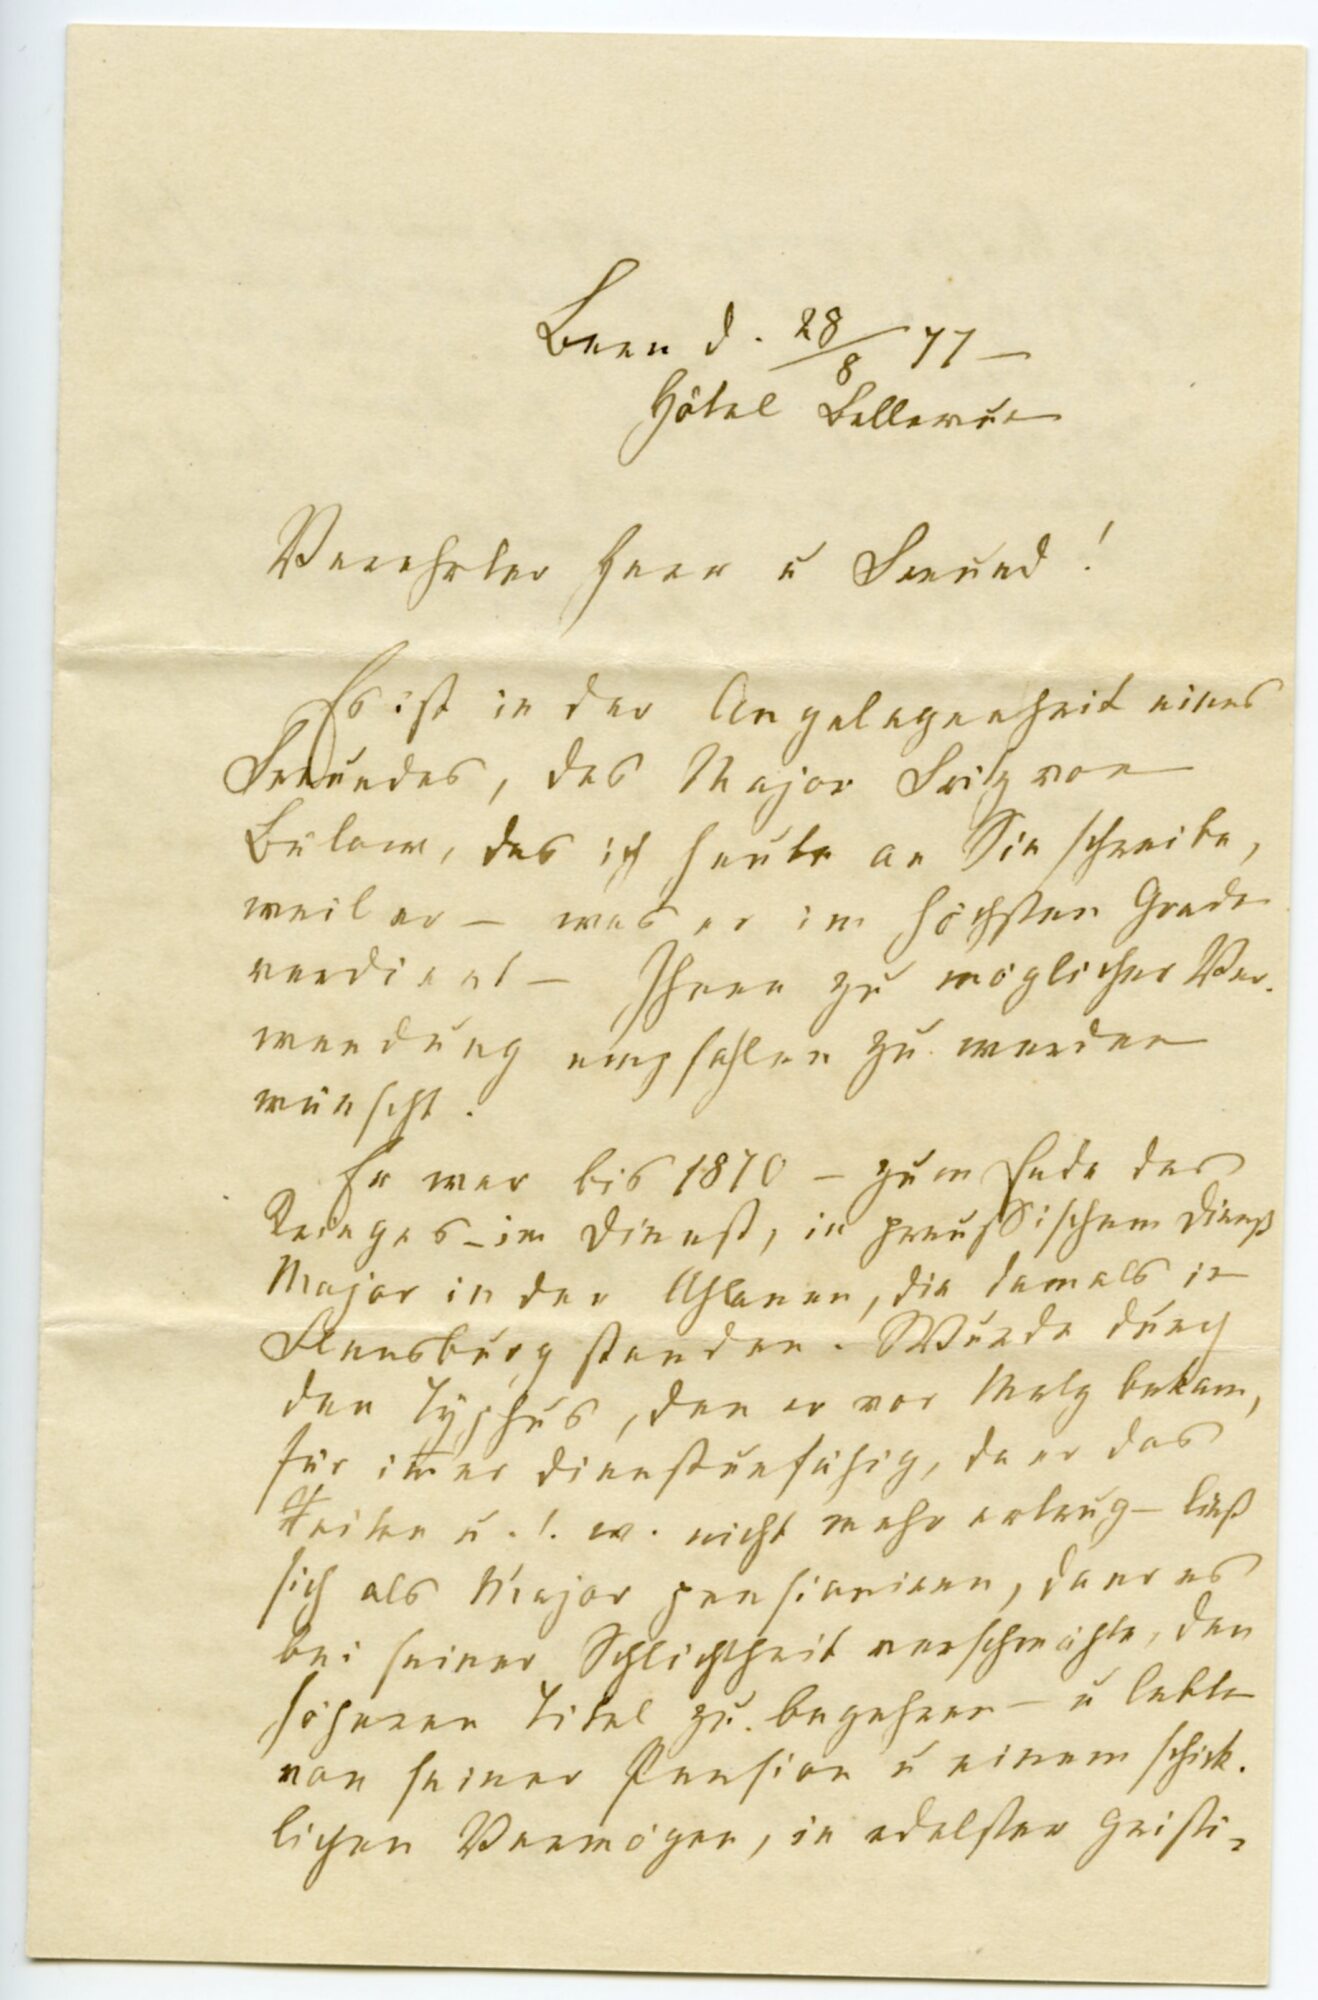 Bern d. 28/8 77 –
Hôtel Bellevue
Verehrter Herr u Freund!
Es ist in der Angelegenheit eines
Freundes, des Major Fritz von
Bülow, das ich heute an Sie schreibe,
weil er – was er im höchsten Grade
verdient – Ihnen zu möglicher Ver-
wendung empfohlen zu werden
wünscht.
Er war bis 1870 – zum Ende des
Krieges – im Dienst, in preußischem Dienst
Major in den Uhlanen, die damals in
Flensburg standen. Wurde durch
den Typhus, den er vor Metz bekam,
für im̅er dienstunfähig, da er das
Reiten u. s. w. nicht mehr ertrug – ließ
sich als Major pensioniren, da er es
bei seiner Schlichtheit verschmähte, den
höheren Titel zu begehren – u lebte
von seiner Pension u einem schick-
lichen Vermögen, in edelster geisti-